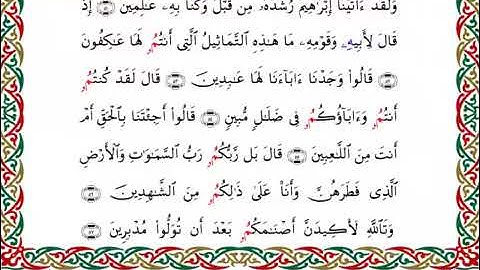 وَلَقَدْ ءَاتَيْنَا إِبْرَٰهِيمَ رُشْدَهُۥ مِن قَبْلُ وَكُنَّا بِهِۦ عَٰلِمِينَ ۝ إِذْ
قَالَ لِأَبِيهِۦ وَقَوْمِهِۦ مَا هَٰذِهِ ٱلتَّمَاثِيلُ ٱلَّتِى أَنتُمُۥ لَهَا عَٰكِفُونَ
۝ قَالُوا۟ وَجَدْنَا ءَابَآءَنَا لَهَا عَٰبِدِينَ ۝ قَالَ لَقَدْ كُنتُمُۥ
أَنتُمُۥ وَءَابَآؤُكُمُۥ فِى ضَلَٰلٍ مُّبِينٍ ۝ قَالُوا۟ أَجِئْتَنَا بِٱلْحَقِّ أَمْ
أَنتَ مِنَ ٱللَّٰعِبِينَ ۝ قَالَ بَل رَّبُّكُمُۥ رَبُّ ٱلسَّمَٰوَٰتِ وَٱلْأَرْضِ
ٱلَّذِى فَطَرَهُنَّ وَأَنَا۠ عَلَىٰ ذَٰلِكُمُۥ مِنَ ٱلشَّٰهِدِينَ ۝
وَتَٱللَّهِ لَأَكِيدَنَّ أَصْنَٰمَكُمُۥ بَعْدَ أَن تُوَلُّوا۟ مُدْبِرِينَ ۝